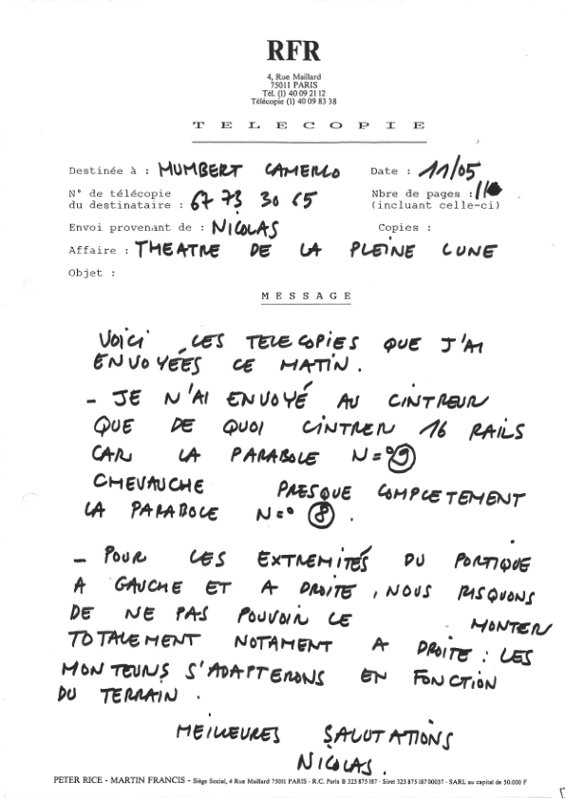 RFR
4, Rue Maillard
75011 PARIS
Tél. (1) 40 09 21 12
Télécopie (1) 40 09 83 38
TELECOPIE
Destinée à : HUMBERT CAMERLO Date : 11/05
N° de télécopie Nbre de pages :
du destinataire : 67 73 30 65 (incluant celle-ci)
Envoi provenant de : NICOLAS Copies :
Affaire : THEATRE DE LA PLEINE LUNE
Objet :
MESSAGE
VOICI LES TELECOPIES QUE J'AI
ENVOYÉES CE MATIN.
- JE N'AI ENVOYÉ AU CINTREUR
QUE DE QUOI CINTRER 16 RAILS
CAR LA PARABOLE N=° 9
CHEVAUCHE PRESQUE COMPLETEMENT
LA PARABOLE N=° 8.
- POUR LES EXTREMITÉS DU PORTIQUE
A GAUCHE ET A DROITE, NOUS RISQUONS
DE NE PAS POUVOIR LE MONTER
TOTALEMENT NOTAMENT A DROITE : LES
MONTEURS S'ADAPTERONS EN FONCTION
DU TERRAIN.
MEILLEURES SALUTATIONS
NICOLAS.
PETER RICE - MARTIN FRANCIS - Siège Social, 4 Rue Maillard 75011 PARIS - R.C. Paris B 323 875 187 - Siret 323 875 187 00037 - SARL au capital de 50.000 F